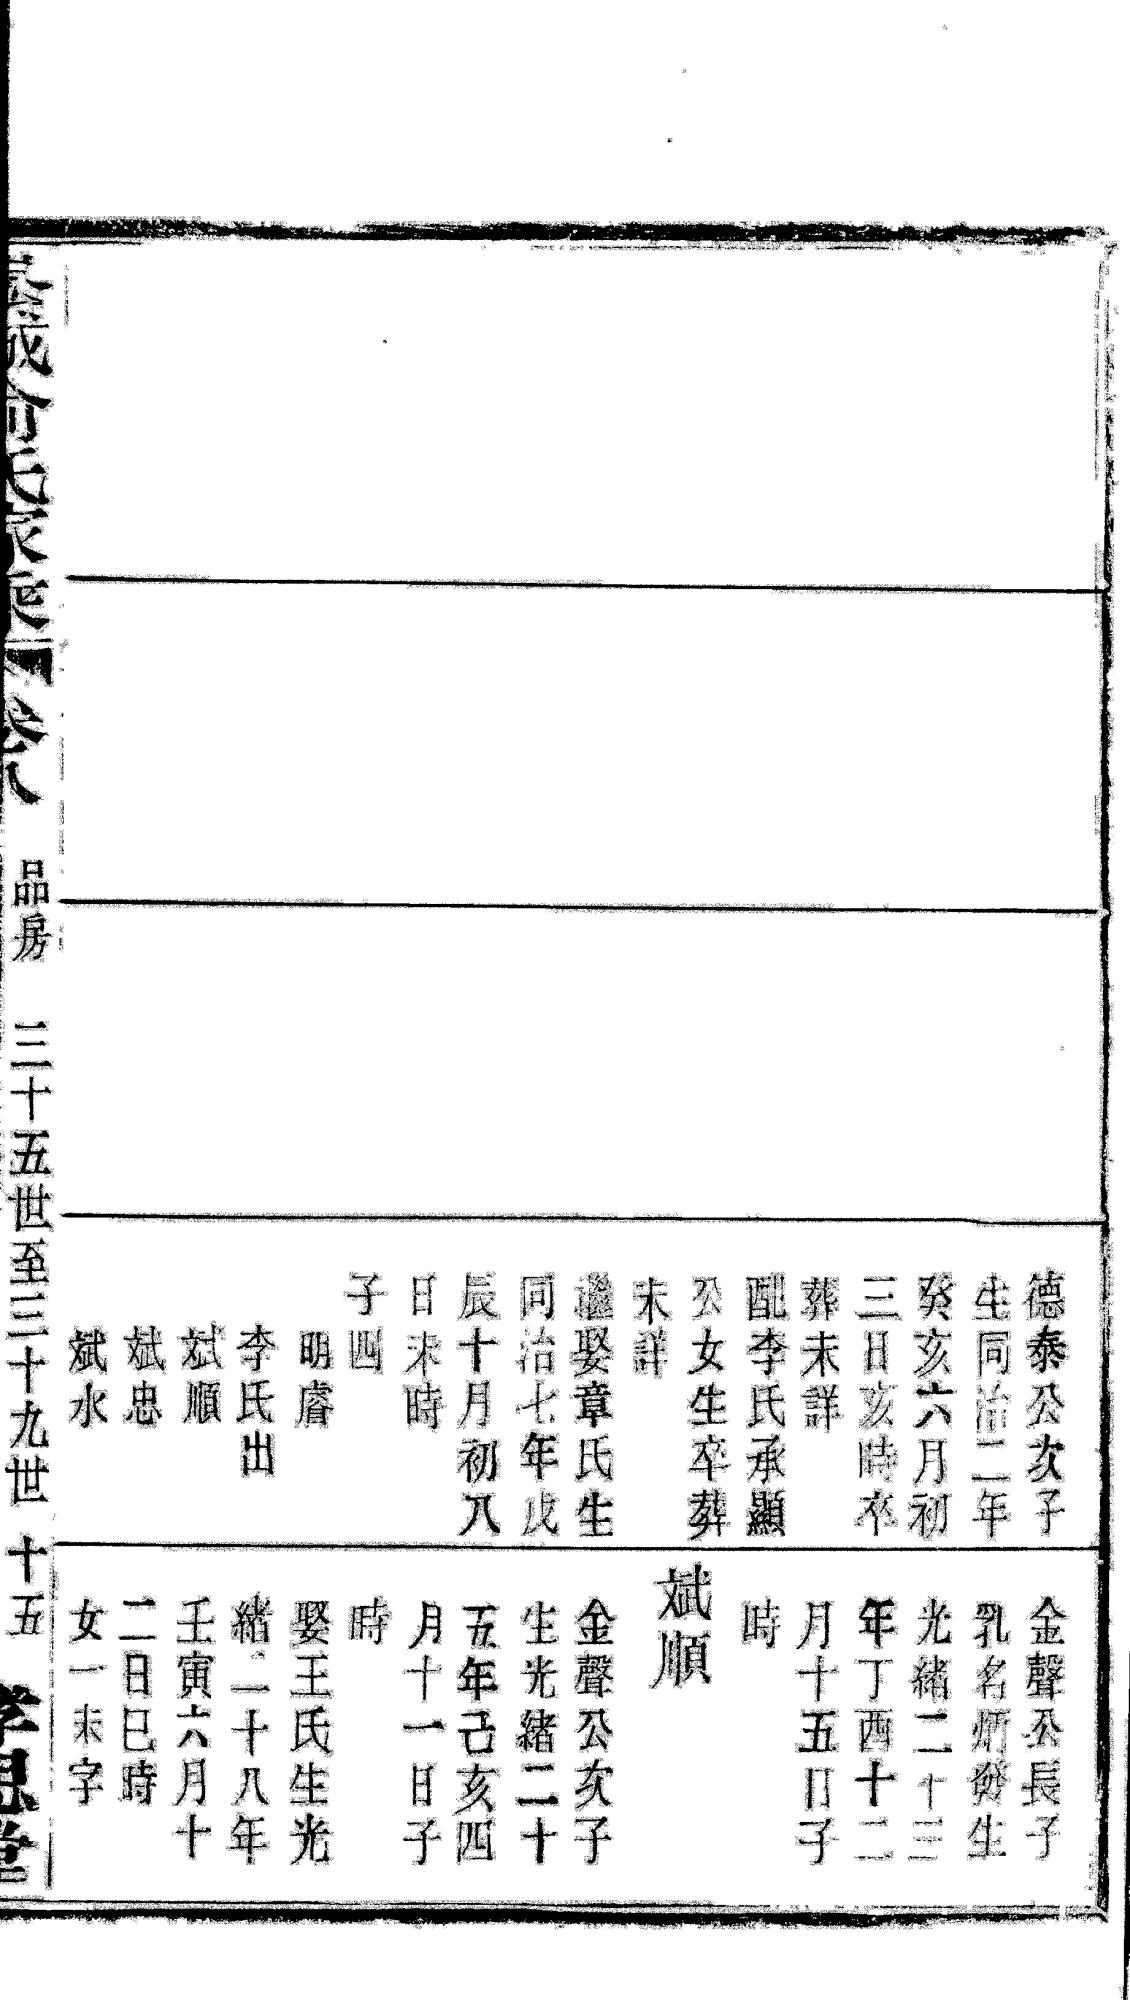 德泰公次子
生同治二年
癸亥六月初
三日亥時卒
葬未詳
配李氏承顯
公女生卒葬
未詳
繼娶章氏生
同治七年戊
辰十月初八
日未時
子四
明睿
李氏出
斌順
斌忠
斌水
金聲公長子
乳名炳發生
光緒二十三
年丁酉十二
月十五日子
時
斌順
金聲公次子
生光緒二十
五年己亥四
月十一日子
時
娶王氏生光
緒二十八年
壬寅六月十
二日巳時
女一未字
氏家 卷八
品房
三十五世至三十九世
十五
孝思堂